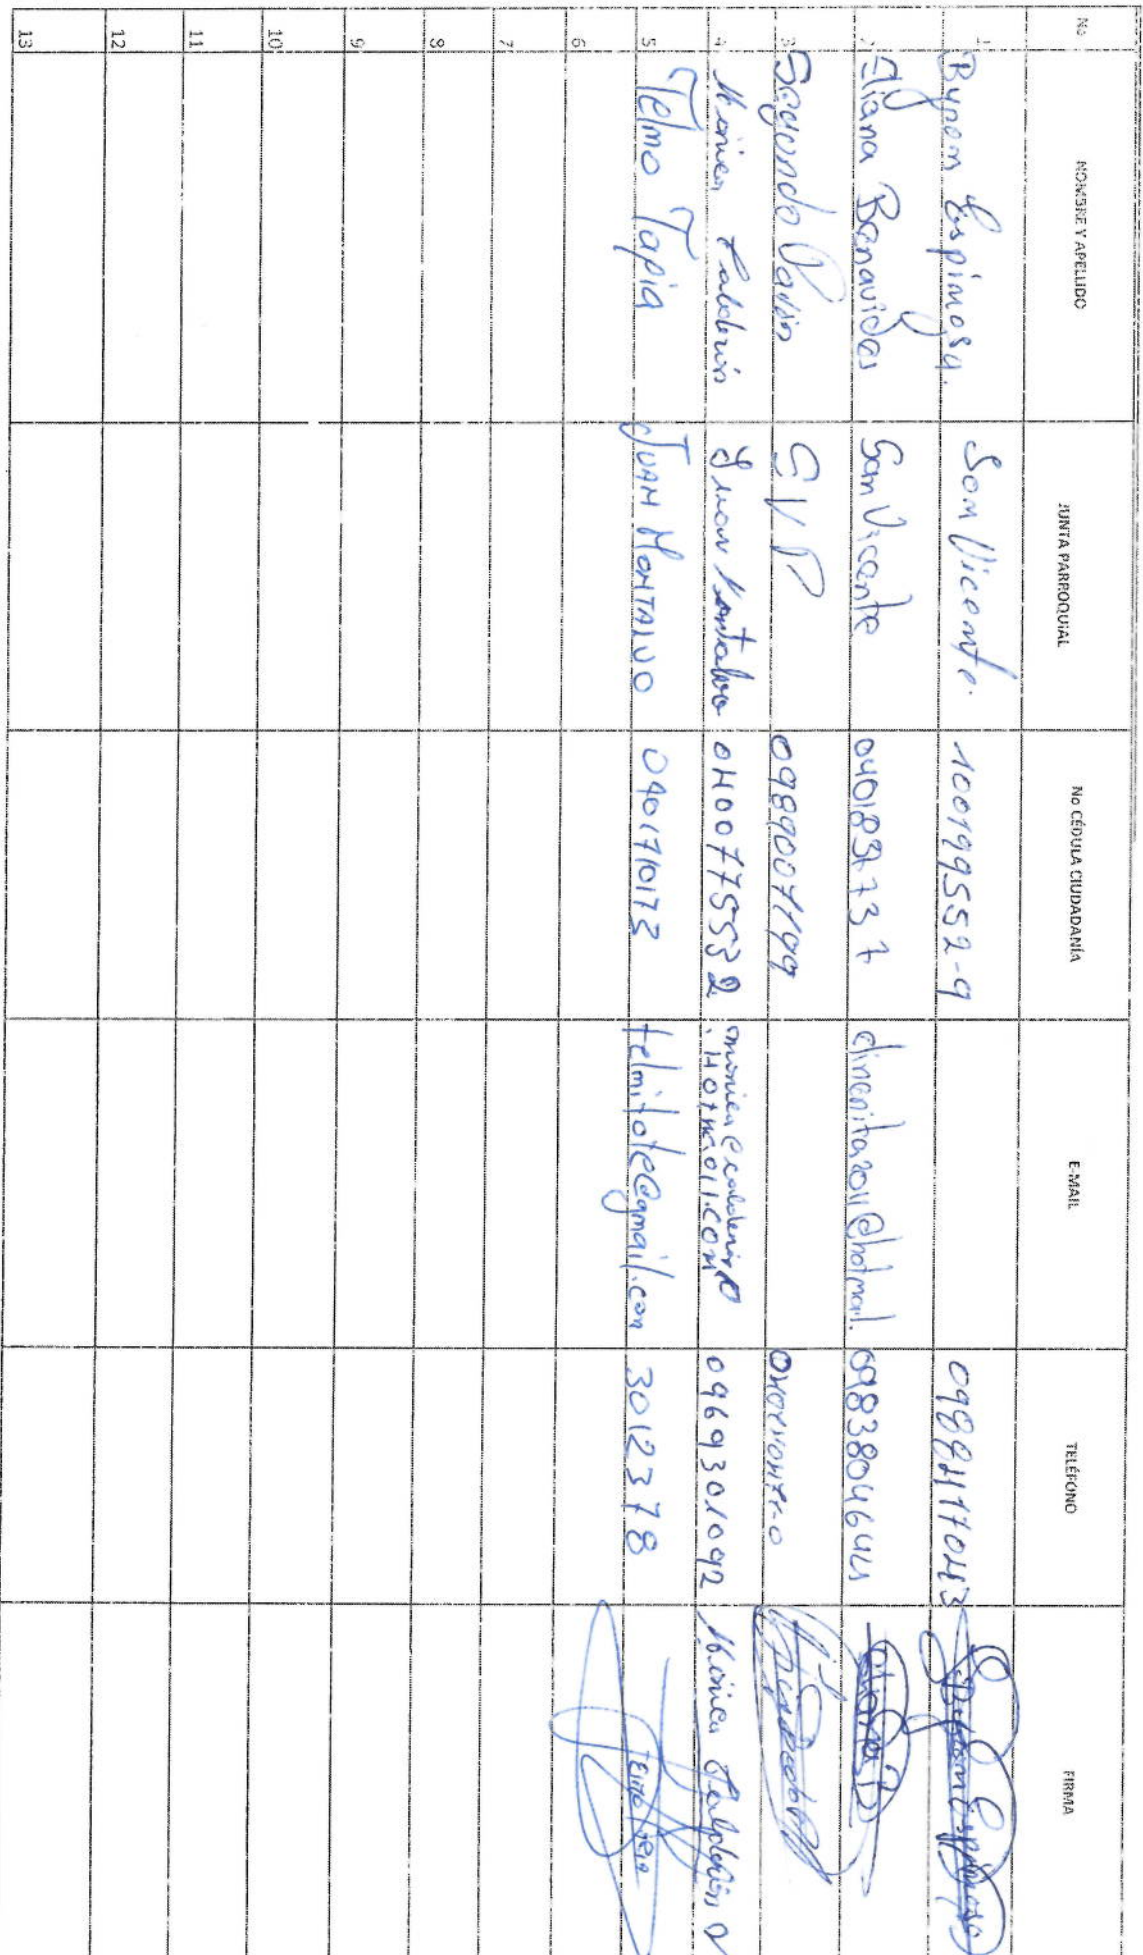 No NOMBRE Y APELLIDO JUNTA PARROQUIAL No CÉDULA CIUDADANÍA E-MAIL TELÉFONO FIRMA
1 Byron Espinosa. San Vicente. 100199552-9 0988117043 Byron Espinosa
2 Eliana Benavides San Vicente 0401831737 elinanita2011@hotmail. 0983804644
3 Segundo SVP 0989007199
4 Monica Calderón Juan Montalvo 0400775532 monica Calderón 0969301092 Monica Calderón
HOTMAIL.COM
5 Telmo Tapia JUAN MONTALVO 0401710173 telmitote@gmail.com 3012378 TELMO TAPIA
6
7
8
9
10
11
12
13